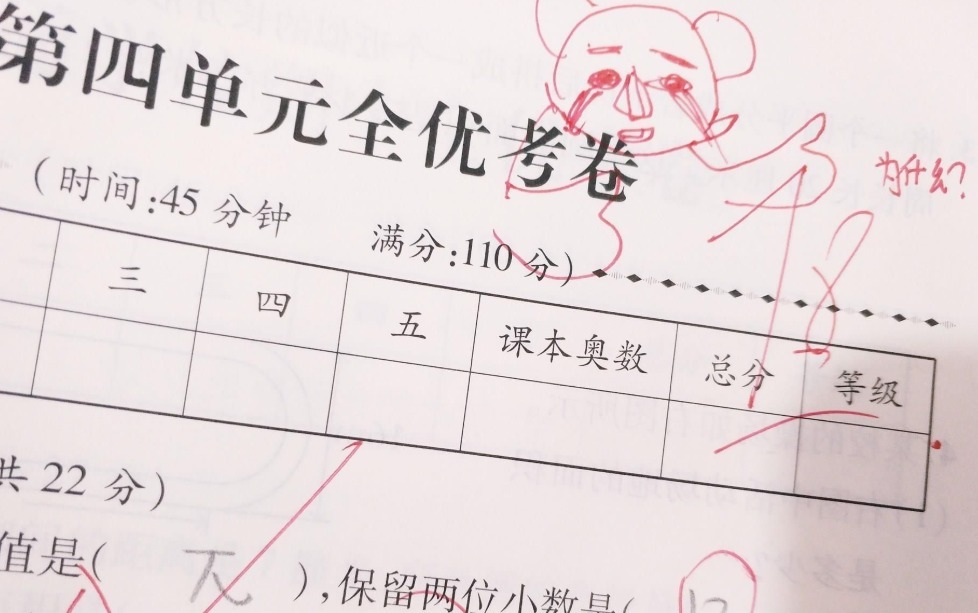 第四单元全优考卷
为什么?
(时间:45分钟 满分:110分)
三 四 五 课本奥数 总分 等级
共22分)
值是( 兀 ),保留两位小数是(